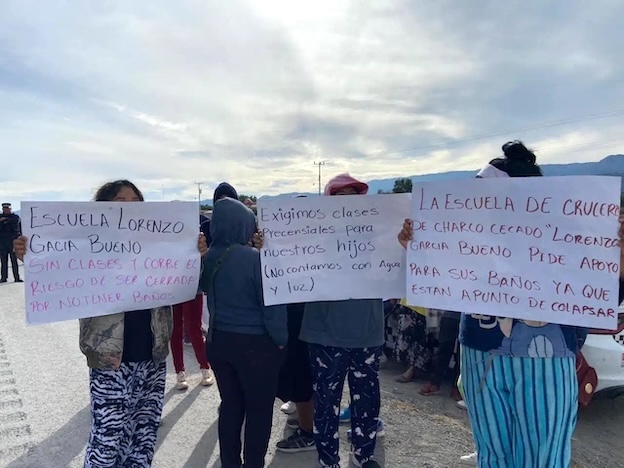 ESCUELA LORENZO
GACIA BUENO
SIN CLASES Y CORRE EL
RIESGO DE SER CERRADA
POR NO TENER BAÑOS
EXIGIMOS CLASES
PRECENSIALES PARA
NUESTROS HIJOS
(NO CONTAMOS CON AGUA
Y LUZ)
LA ESCUELA DE CRUCERO
DE CHARCO CECADO "LORENZO
GARCIA BUENO PIDE APOYO
PARA SUS BAÑOS YA QUE
ESTAN APUNTO DE COLAPSAR